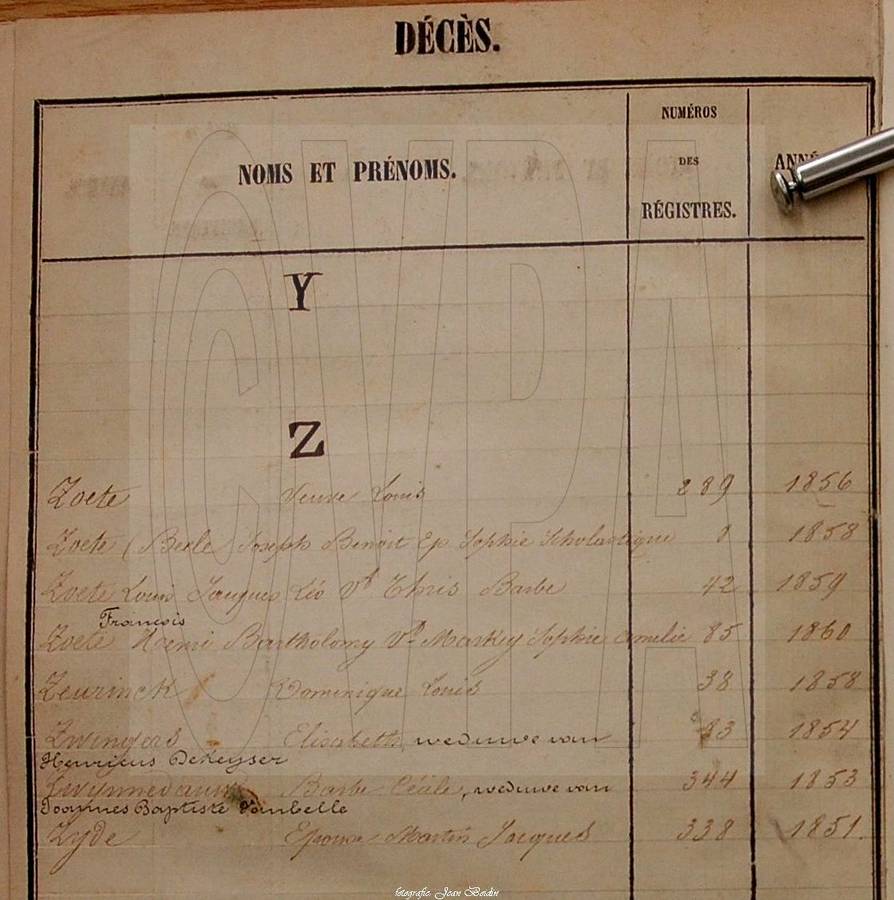 DÉCÈS.
NOMS ET PRÉNOMS.
NUMÉROS
DES
RÉGISTRES.
ANNÉ
Y
Z
Zoete Veuve Louis 289 1856
Zoete (Berle Joseph Benoit Ep Sophie Scholastique 8 1858
Zoete Louis Jacques Léo Vf Thris Barbe 42 1859
François
Zoete Noemi Bartholomy Vf Markey Sophie Amelie 85 1860
Zeurinck Dominique Louis 38 1858
Zwingers Elisabeth weduwe van 83 1854
Henricus DeKeyser
Zwynnedauw Barbe Cécile, weduwe van 344 1853
Joannes Baptiste Vanbelle
Zyde Epouse Martin Jacques 338 1851
CVPA
fotografie: Jean Boidin